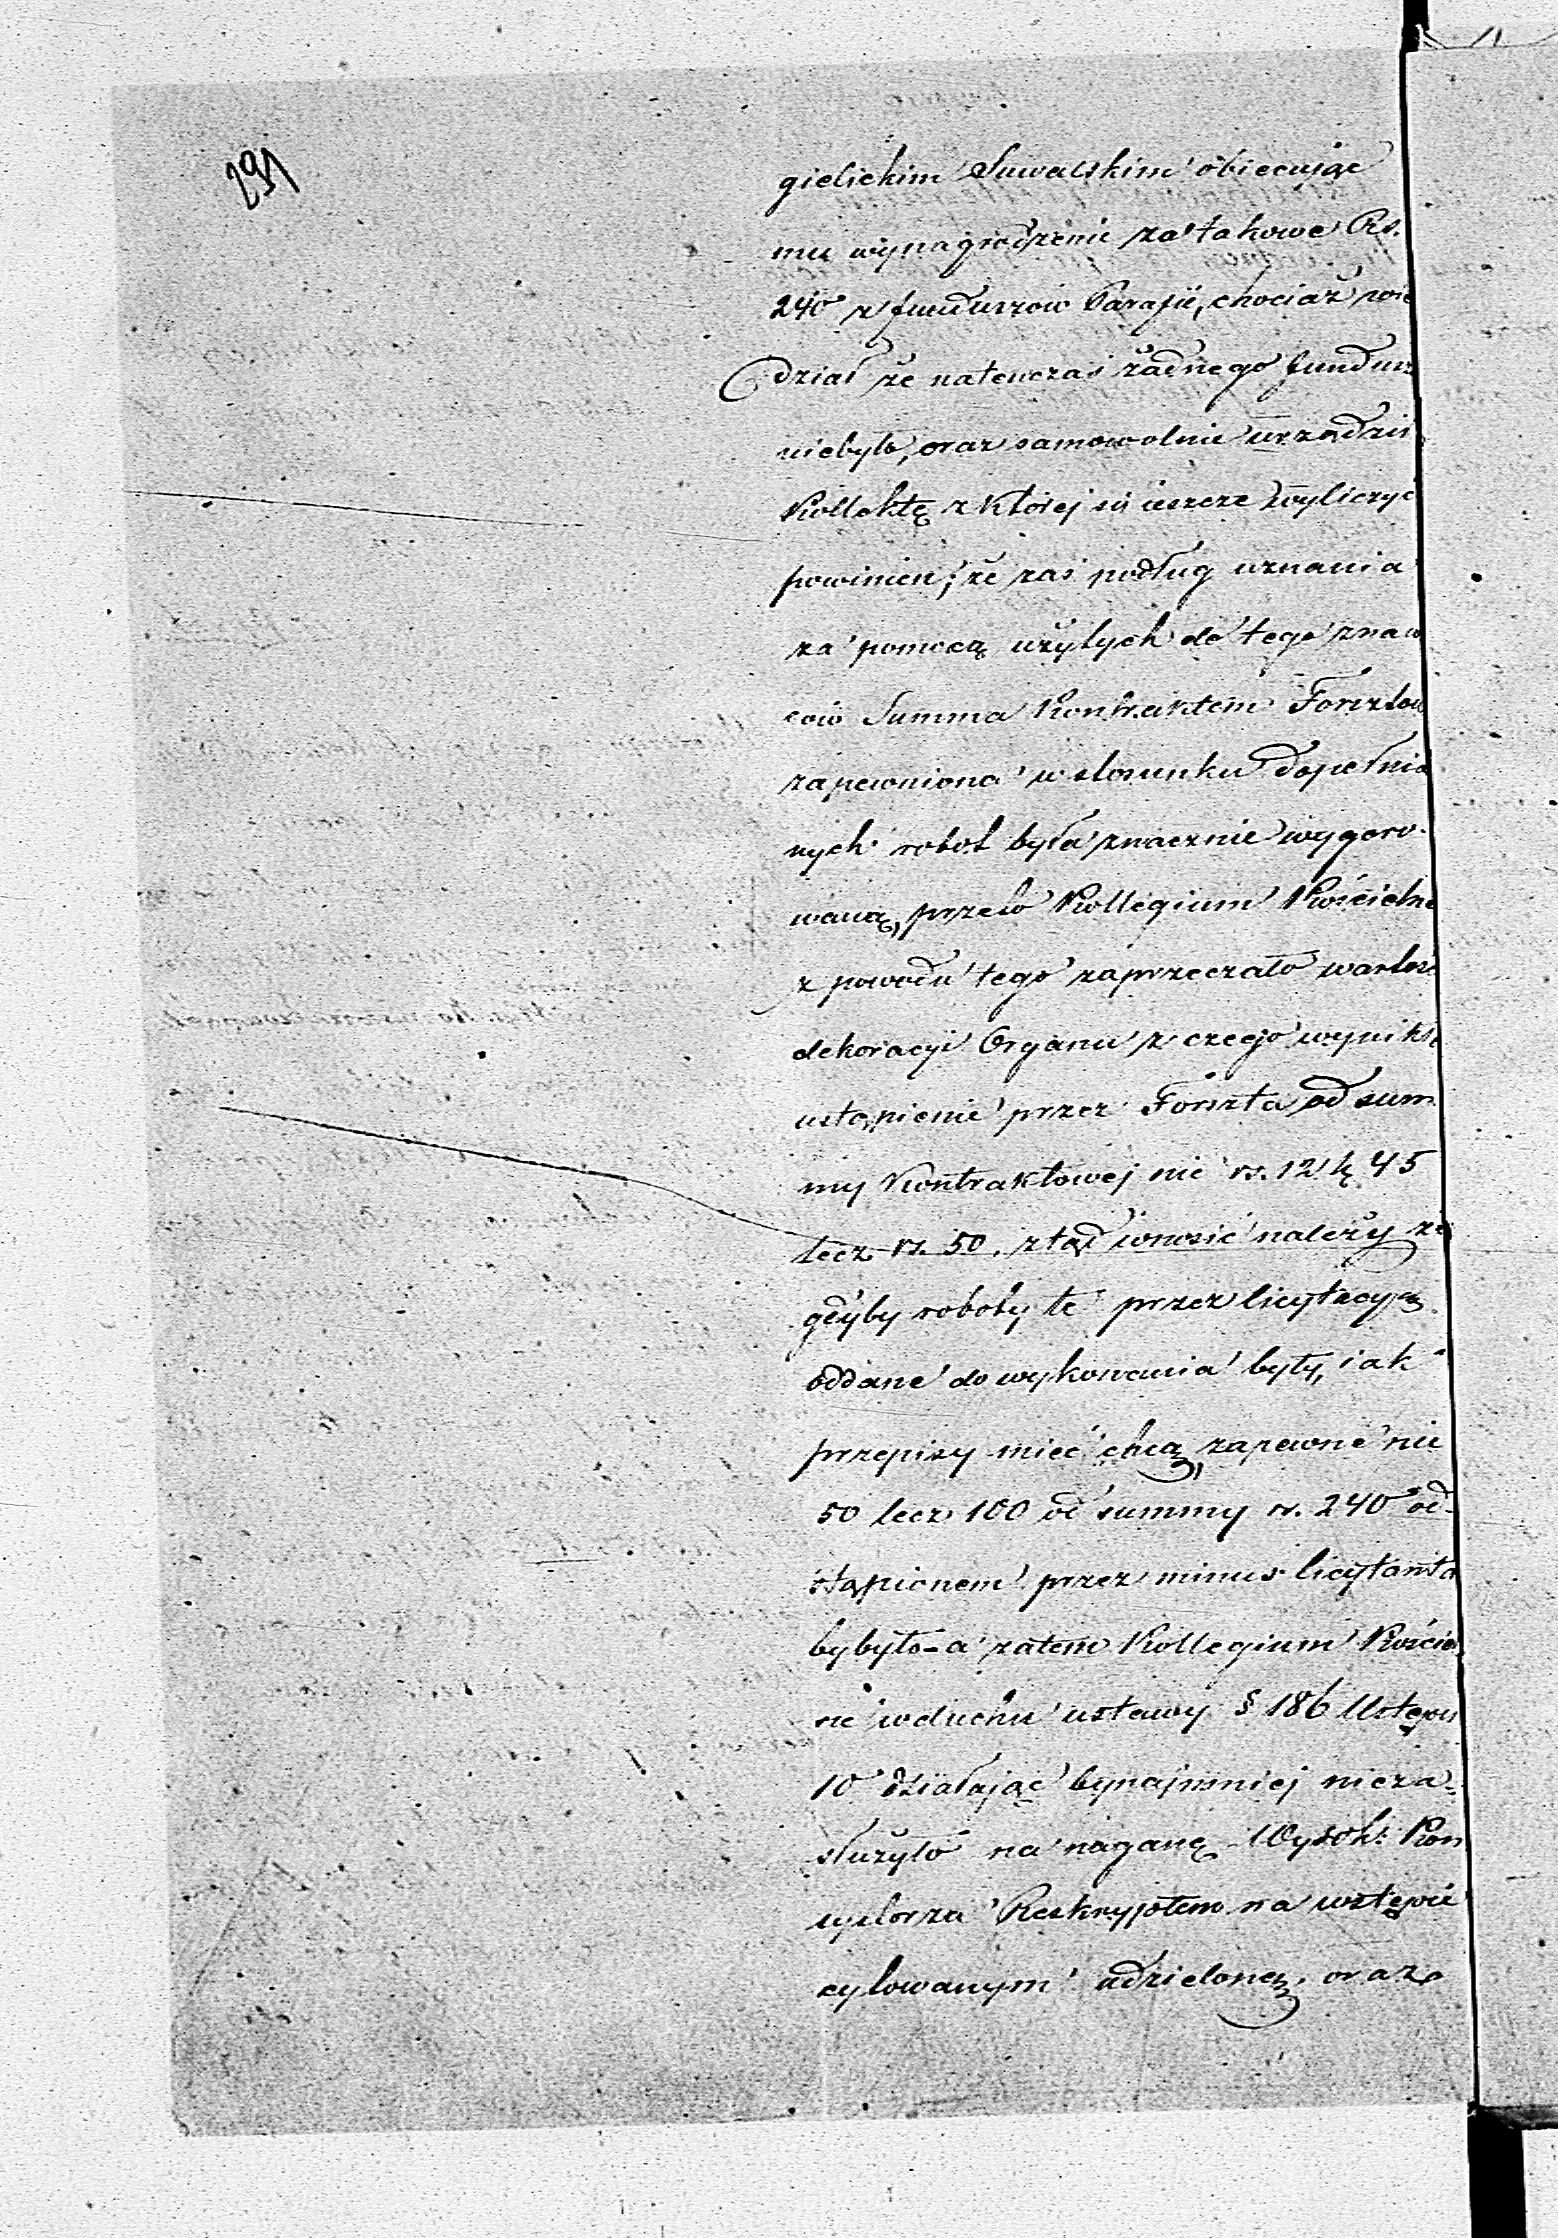 291
gielickim Suwalskim obiecując
mu wynagrodzenie za takowe Rs.
240 z funduszów Parafii, chociaż wie
dział że natenczas żadnego fundusz
niebyło, oraz samowolnie urządził
Kollektę z której się jeszcze wyliczyć
powinien; że zaś podług uznania
za pomocą użytych do tego znaw
ców Summa Kontraktem Forsztow
zapewniona w stosunku dopełnio
nych robot była znacznie wygoro-
waną, przeto Kollegium Kościelne
z powodu tego zaprzeczało wartość
dekoracyi Organu z czego wynikło
ustąpienie przez Forszta od sum
my Kontraktowej nie rs. 12 k 45
lecz rs. 50. ztąd wnosić należy że
gdyby roboty te przez licytacyą
oddane do wykonania były, jak
przepisy mieć chcą, zapewne nie
50 lecz 100 od summy rs. 240 od-
stąpionem przez minus licytanta
by było - a zatem Kollegium Kościel
ne w duchu ustawy § 186 Ustępu
10 działając bynajmniej nieza-
służyło na naganę Wysok: Kon
systorza Reskryptem na wstępie
cytowanym udzieloną, oraz